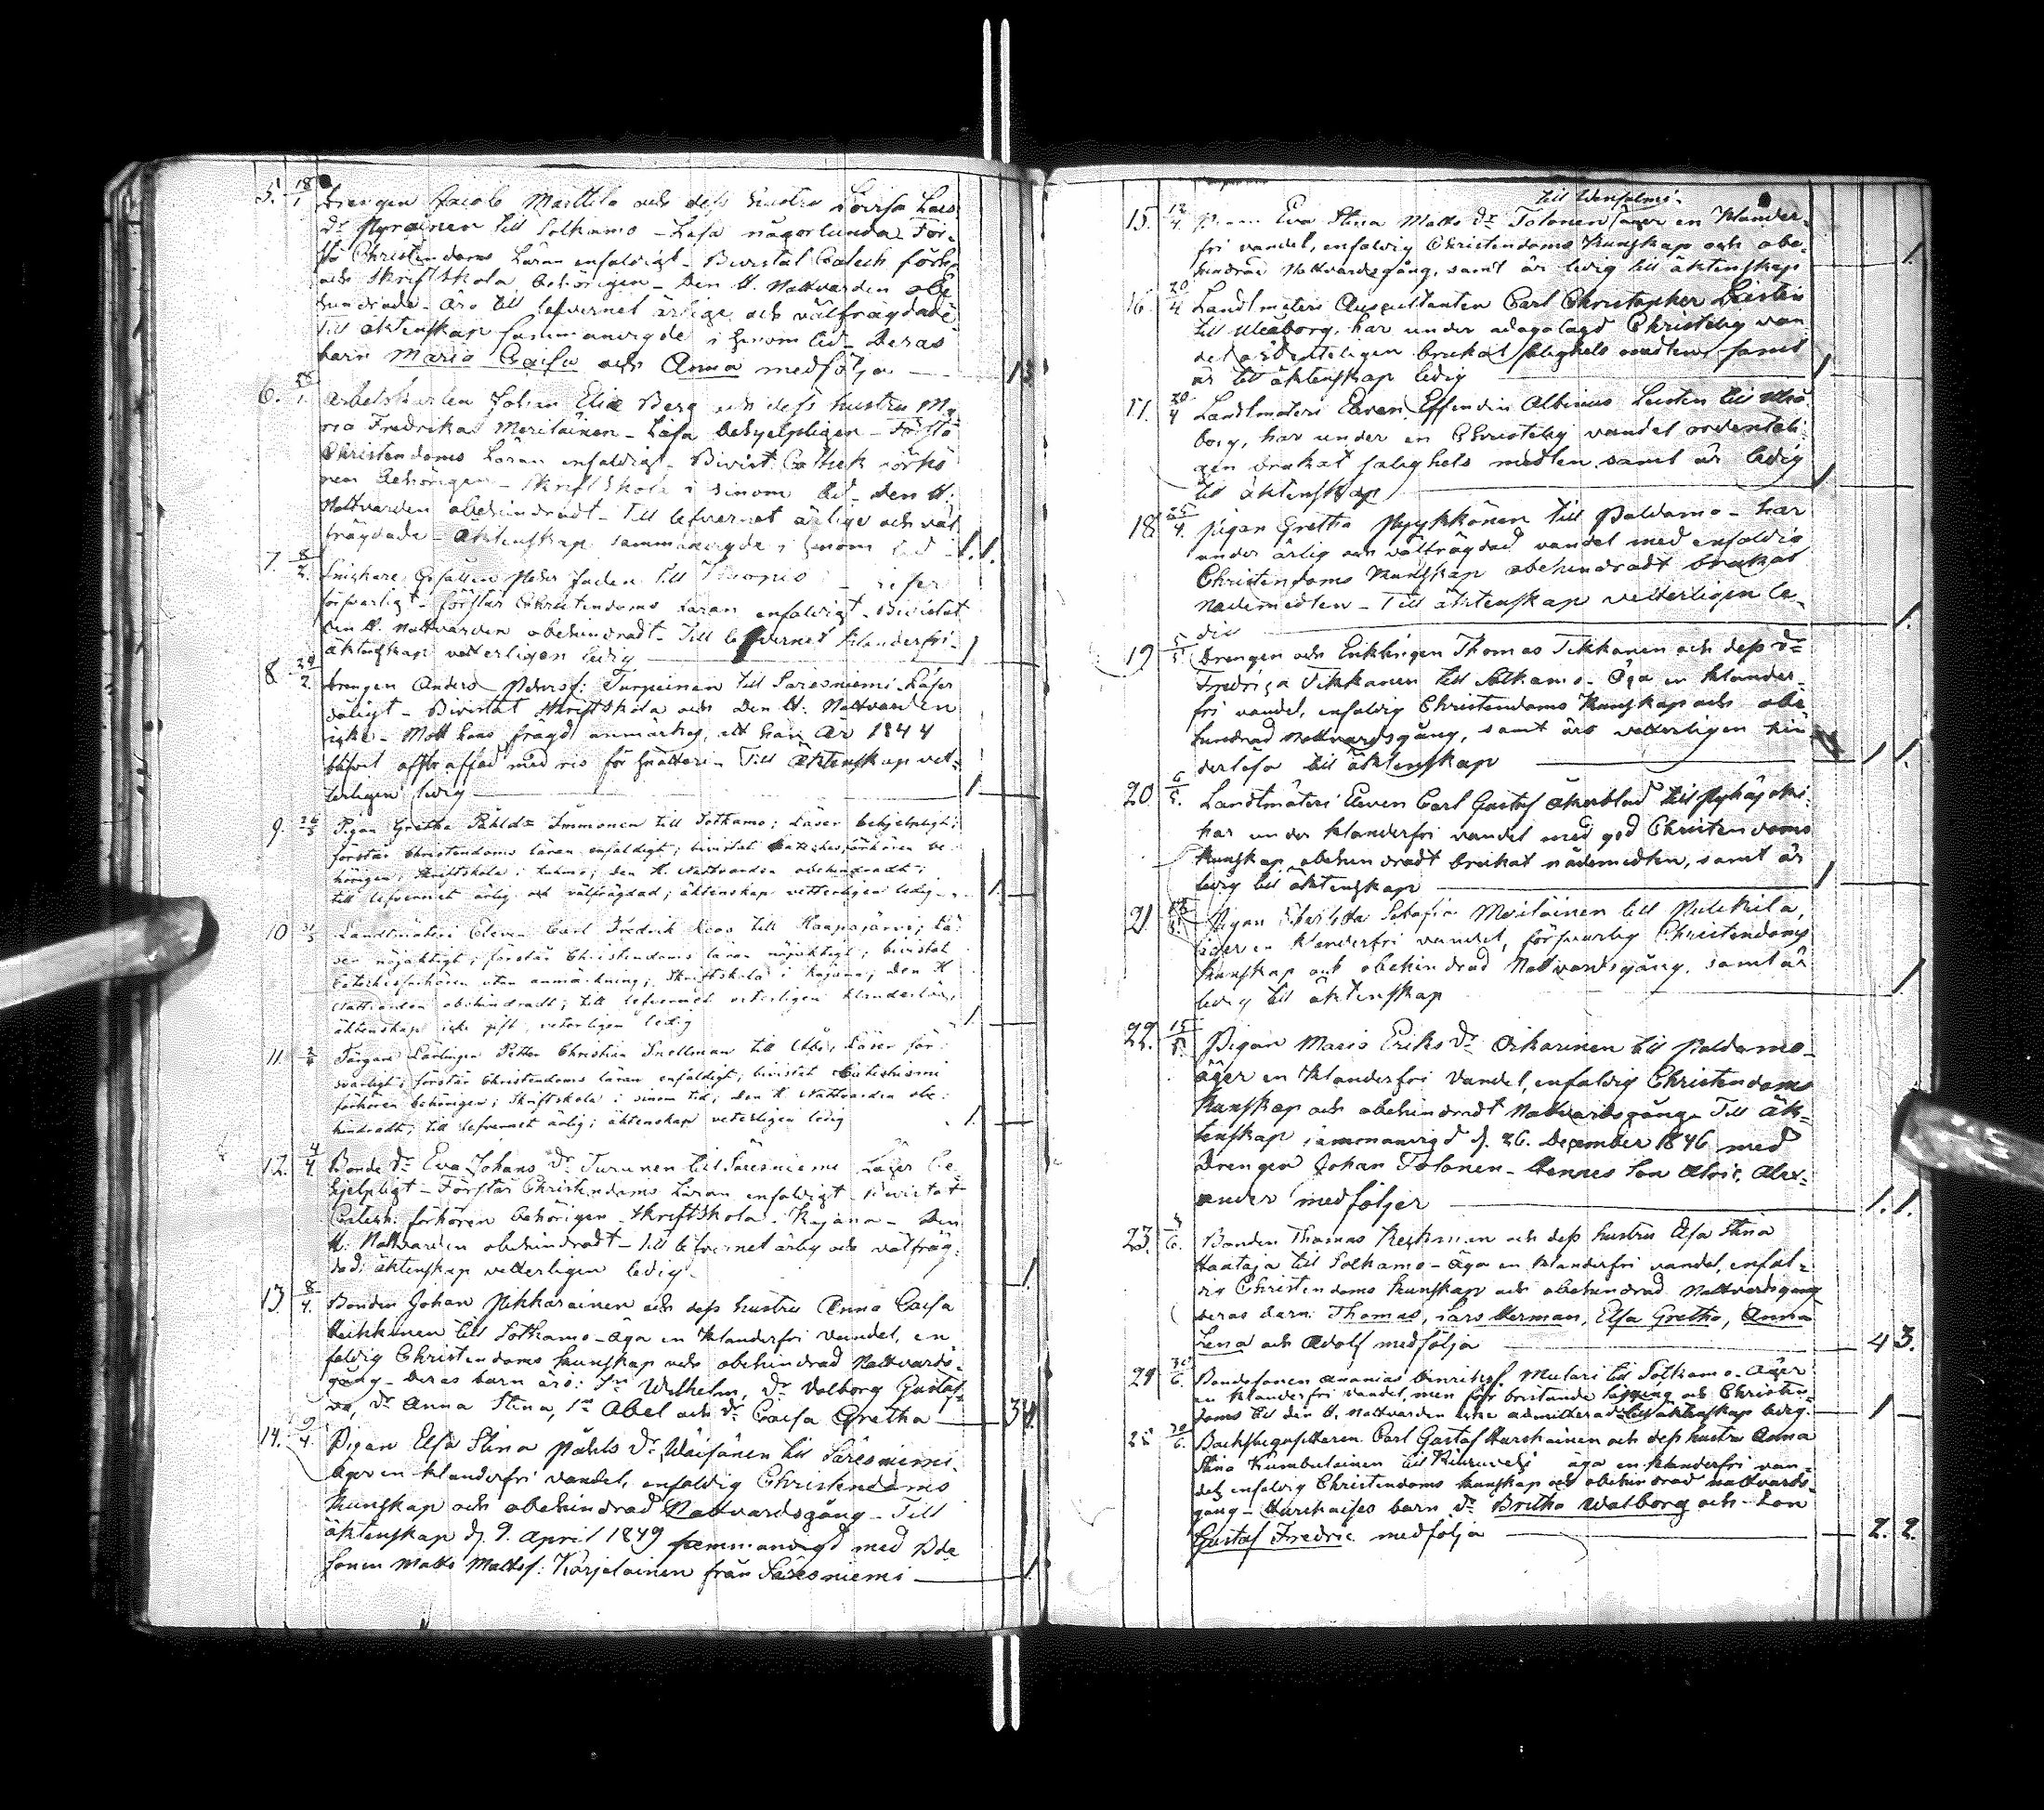 5. 18/1 Drengen Jacob Marttila och dess hustru Lovisa Lars
Dr Pyrainen till Sotkamo – Läsa någorlunda – För-
stå Christendoms Läran enfaldigt – Bivistat Catech förh.
och Skriftskola behörigen – Den H. Nattvarden obe
hindrade – äro till lefvernet ärlige och välfrägdade
Till äktenskap sammanvigde i sinom tid – Deras
barn Maria Caisa och Anna medfölja — 1 3
6. Arbetskarlen Johan Elia Berg och dess hustru Ma
ria Fredrika Meriläinen – Läsa behjelpligen – Förstå
Christendoms Läran enfaldigt – Bivist. Cathek förhö
ren behörigen – Skriftskola i sinom tid – Den H.
Nattvarden obehindradt – Till lefvernet ärlige och väl
frägdade – Äktenskap sammanvigde i sinom tid – 1. 1.
7. 8/2. Snickare Gesällen Peter Juden till Kuopio –
försvarligt – förstår Christendoms Läran enfaldigt – Bivistat
Den H. Nattvarden obehindradt – Till lefvernet klanderfri –
äktenskap vetterligen ledig — 1
8 24/2. Drengen Anders Pehrss: Turpeinen till Säresniemi – Läser
dåligt – Bivistat Skriftskola och den H. Nattvarden
icke – Mot hans frägd anmärkes, att han År 1844
blifvit afstraffad med ris för snatteri – Till Äktenskap vet-
terligen ledig — 1
9. Pigan Gretha Påhlsdr Immonen till Sotkamo; Läser behjelpligt;
förstår Christendoms läran enfaldigt; bivistat Catechesförhören be
hörigen; Skriftskola i sinom; den H. Nattvarden obehindradt;
till lefvernet ärlig och välfrägdad; äktenskap vetterligen ledig – 1.
10 Landtmäteri Eleven Carl Fredrik Roos till Haapajärvi; Lä-
ser nöjaktigt; förstår Christendoms läran nöjaktigt; bivistat
Catechesförhören utan anmärkning; Skriftskola i Kajana; den H
Nattvarden obehindradt; till lefvernet veterligen klanderlös;
äktenskap icke gift, veterligen ledig 1.
11. Färgare Lärlingen Petter Christian Snellman till Åbo; Läser för
svarligt; förstår Christendoms läran enfaldigt; bivistat Catechismi
förhören behörigen; Skriftskola i sinom tid; den H. Nattvarden obe-
hindradt; till lefvernet ärlig; äktenskap veterligen ledig 1.
12. 4/4 Bonde Dr Eva Johans Dr Turunen till Säresniemi Läser be
hjelpligt – Förstår Christendoms Läran enfaldigt – Bivistat
Catech. förhören behörigen – Skriftskola – Kajana – Den
H. Nattvarden obehindradt – Till lefvernet ärlig och välfräg-
dad; äktenskap vetterligen ledig – 1
13. 8/4. Bonden Johan Pikkarainen och dess hustru Anna Caisa
Heikkinen till Sotkamo – äga en klanderfri vandel, en
faldig Christendoms kunskap och obehindrad Nattvards-
gång – Deras barn äro: Sn Wilhelm, Dr Valborg Gustaf-
va, Dr Anna Stina, Sn Abel och Dr Caisa Gretha — 3 4
14. 9/4. Pigan Elsa Stina Påhls Dr Wäisänen till Säresniemi.
Äger en klanderfri vandel, enfaldig Christendoms
kunskap och obehindrad Nattvardsgång – Till
äktenskap d. 9. April 1849 sammanvigd med Bde
sonen Matts Mattss: Karjalainen från Säresniemi — 1
till Idensalmi
15. 12/4. Pigan Eva Stina Matts Dr Tolonen äger en klander-
fri vandel, enfaldig Christendoms kunskap och obe-
hindrad Nattvardsgång, samt är ledig till äktenskap — 1.
16. 20/4 Landtmäteri Auscultanten Carl Christopher Leistén
till Uleåborg, har under ådagalagd Christelig van
del ordenteligen brukat salighets medlen samt
är till äktenskap ledig — 1
17. 20/4 Landtmäteri Eleven Effendin Albinus Leistén till Uleå
borg, har under en Christelig vandel ordenteli-
gen brukat salighets medlen samt är ledig
till äktenskap — 1
18. 25/4. Pigan Gretha Pyykkönen till Paldamo – har
under ärlig och välfrägdad vandel med enfaldig
Christendoms kunskap obehindradt brukat
nådemedlen – Till äktenskap vetterligen le-
dig — 1.
19 5/5 Drengen och Enklingen Thomas Tikkanen och dess Dr
Fredrica Tikkanen till Sotkamo – Äga en klander-
fri vandel, enfaldig Christendoms kunskap och obe
hindrad Nattvardsgång, samt äro vetterligen hin
derlösa till äktenskap — 1 1.
20 6/5. Landtmäteri Eleven Carl Gustaf Åkerblad till Pyhäjoki
har under klanderfri vandel med god Christendoms
kunskap obehindradt brukat nådemedlen, samt är
ledig till äktenskap — 1
21. Pigan Sofia Meriläinen till Pulkkila,
äger en klanderfri vandel, försvarlig Christendoms
kunskap och obehindrad Nattvardsgång, samt är
ledig till äktenskap — 1
22. 15/5. Pigan Maria Eriks Dr Askarinen till Paldamo –
äger en klanderfri vandel, enfaldig Christendoms
kunskap och obehindradt Nattvardsgång – Till äk-
tenskap sammanvigd d. 26. December 1846 med
Drengen Johan Tolonen – Hennes son Alex-
ander medföljer — 1. 1.
23. /6. Bonden Thomas Keskinen och dess hustru Elsa Stina
Haataja till Sotkamo – äga en klanderfri vandel, enfal-
dig Christendoms kunskap och obehindrad Nattvardsgång
deras barn: Thomas, Lars Herman, Elsa Gretha, Anna
Lena och Adolf medfölja — 4 3.
24 /6. Bondesonen Ananias Henrikss. Mulari till Sotkamo – Äger
en klanderfri vandel, men för bristande läsning och Christen-
doms till den H. Nattvarden icke admitterad – till äktenskap ledig. — 1
25 20/6. Backstugusittaren Carl Gustaf Hurskainen och dess hustru Anna
Stina Kumbulainen till Kiuruvesi äga en klanderfri van-
del, enfaldig Christendoms kunskap och obehindrad nattvards-
gång – Hurskaises barn Dr Britha Walborg och Son
Gustaf Fredric medfölja — 2. 2.